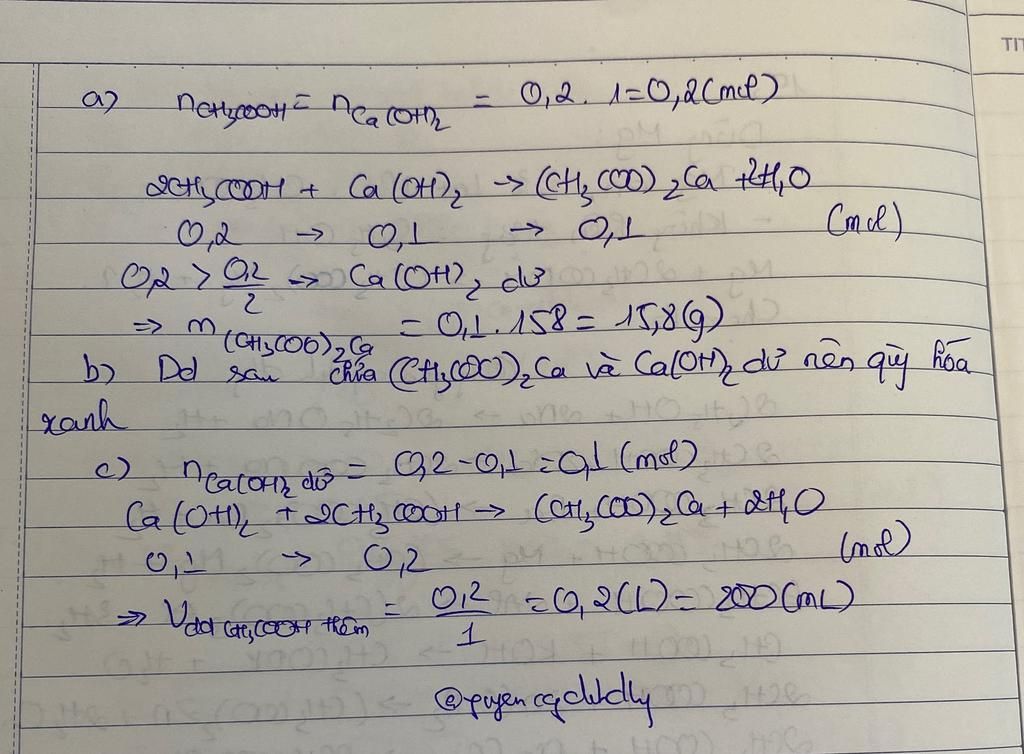 TIT
a) nCH3COOH = nCa(OH)2 = 0,2 . 1 = 0,2 (mol)
2CH3COOH + Ca(OH)2 → (CH3COO)2Ca + 2H2O
0,2 → 0,1 → 0,1 (mol)
0,2 > 0,2/2 → Ca(OH)2 dư
=> m(CH3COO)2Ca = 0,1 . 158 = 15,8 (g)
b) Dd sau chứa (CH3COO)2Ca và Ca(OH)2 dư nên quỳ hóa
xanh
c) nCa(OH)2 dư = 0,2 - 0,1 = 0,1 (mol)
Ca(OH)2 + 2CH3COOH → (CH3COO)2Ca + 2H2O
0,1 → 0,2 (mol)
=> Vdd CH3COOH thêm = 0,2/1 = 0,2 (L) = 200 (mL)